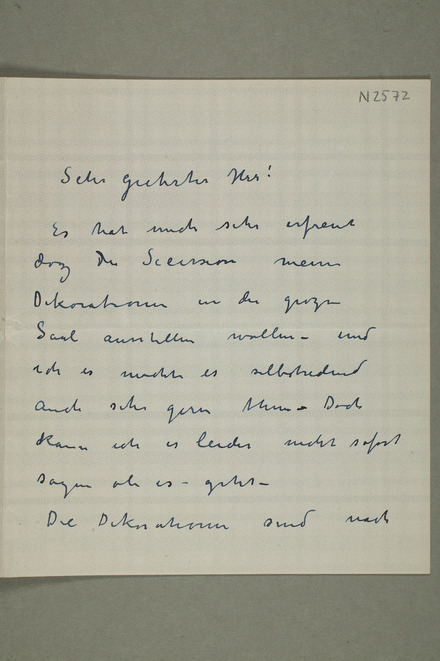 N2572
Sehr geehrter Herr!
Es hat mich sehr erfreut
dass Die Secession meine
Dekorationen in der grozen
Saal ausstellen wollen – und
ich es möchte es selbstredend
auch sehr gern thun – Doch
kann ich es leider nicht sofort
sagen ob es – geht –
Die Dekorationen sind nach